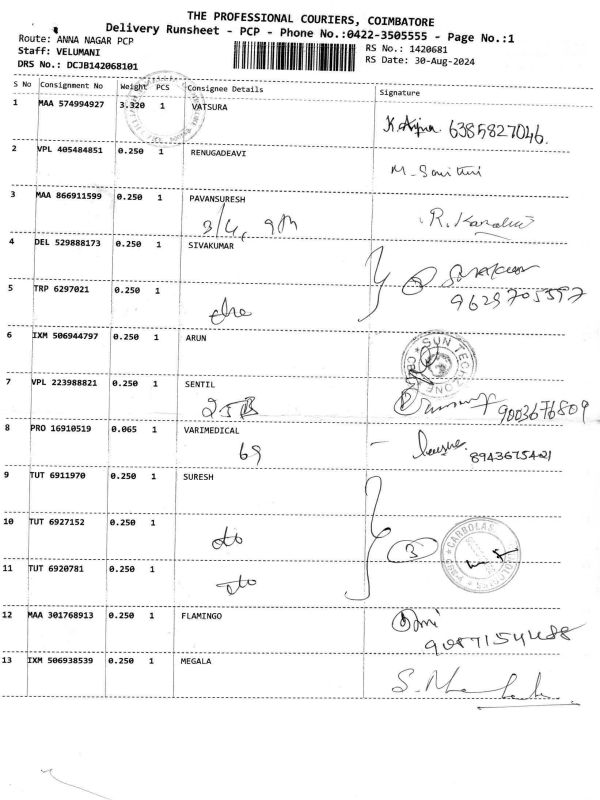 THE PROFESSIONAL COURIERS, COIMBATORE
Delivery Runsheet - PCP - Phone No.:0422-3505555 - Page No.:1
Route: ANNA NAGAR PCP
Staff: VELUMANI
DRS No.: DCJB142068101
RS No.: 1420681
RS Date: 30-Aug-2024
S No Consignment No Weight PCS Consignee Details Signature
1 MAA 574994927 3.320 1 VATSURA
6385827046.
2 VPL 405484851 0.250 1 RENUGADEAVI
M. Savithri
3 MAA 866911599 0.250 1 PAVANSURESH
3/4, 9th
4 DEL 529888173 0.250 1 SIVAKUMAR
5 TRP 6297021 0.250 1
9629705397
6 IXM 506944797 0.250 1 ARUN
SUN TECHZONE
7 VPL 223988821 0.250 1 SENTIL
25B
9003676809
8 PRO 16910519 0.065 1 VARIMEDICAL
69
8943675421
9 TUT 6911970 0.250 1 SURESH
10 TUT 6927152 0.250 1
do
3
CARBOLAS
11 TUT 6920781 0.250 1
do
12 MAA 301768913 0.250 1 FLAMINGO
9087154488
13 IXM 506938539 0.250 1 MEGALA